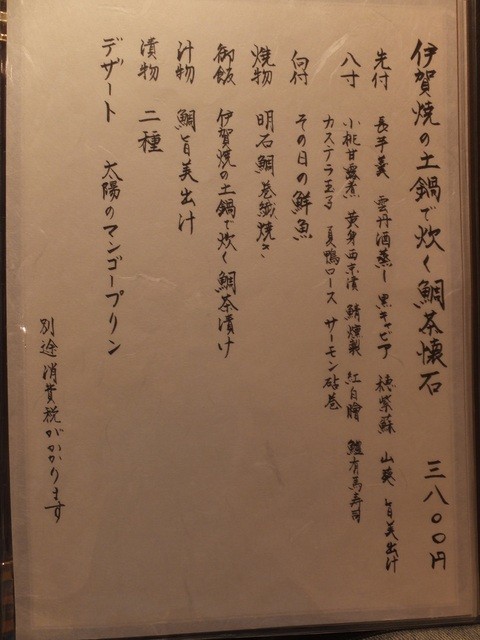 伊賀焼の土鍋で炊く鯛茶懐石 三八〇〇円
先付 長芋羹 雲丹酒蒸し 黒キャビア 穂紫蘇 山葵 旨美出汁
八寸 小桃甘露煮 黄身西京漬 鯖燻製 紅白膾 鱧有馬寿司
カステラ玉子 夏鴨ロース サーモン砧巻
向付 その日の鮮魚
焼物 明石鯛巻繊焼き
御飯 伊賀焼の土鍋で炊く鯛茶漬け
汁物 鯛旨美出汁
漬物 二種
デザート 太陽のマンゴープリン
別途消費税がかかります